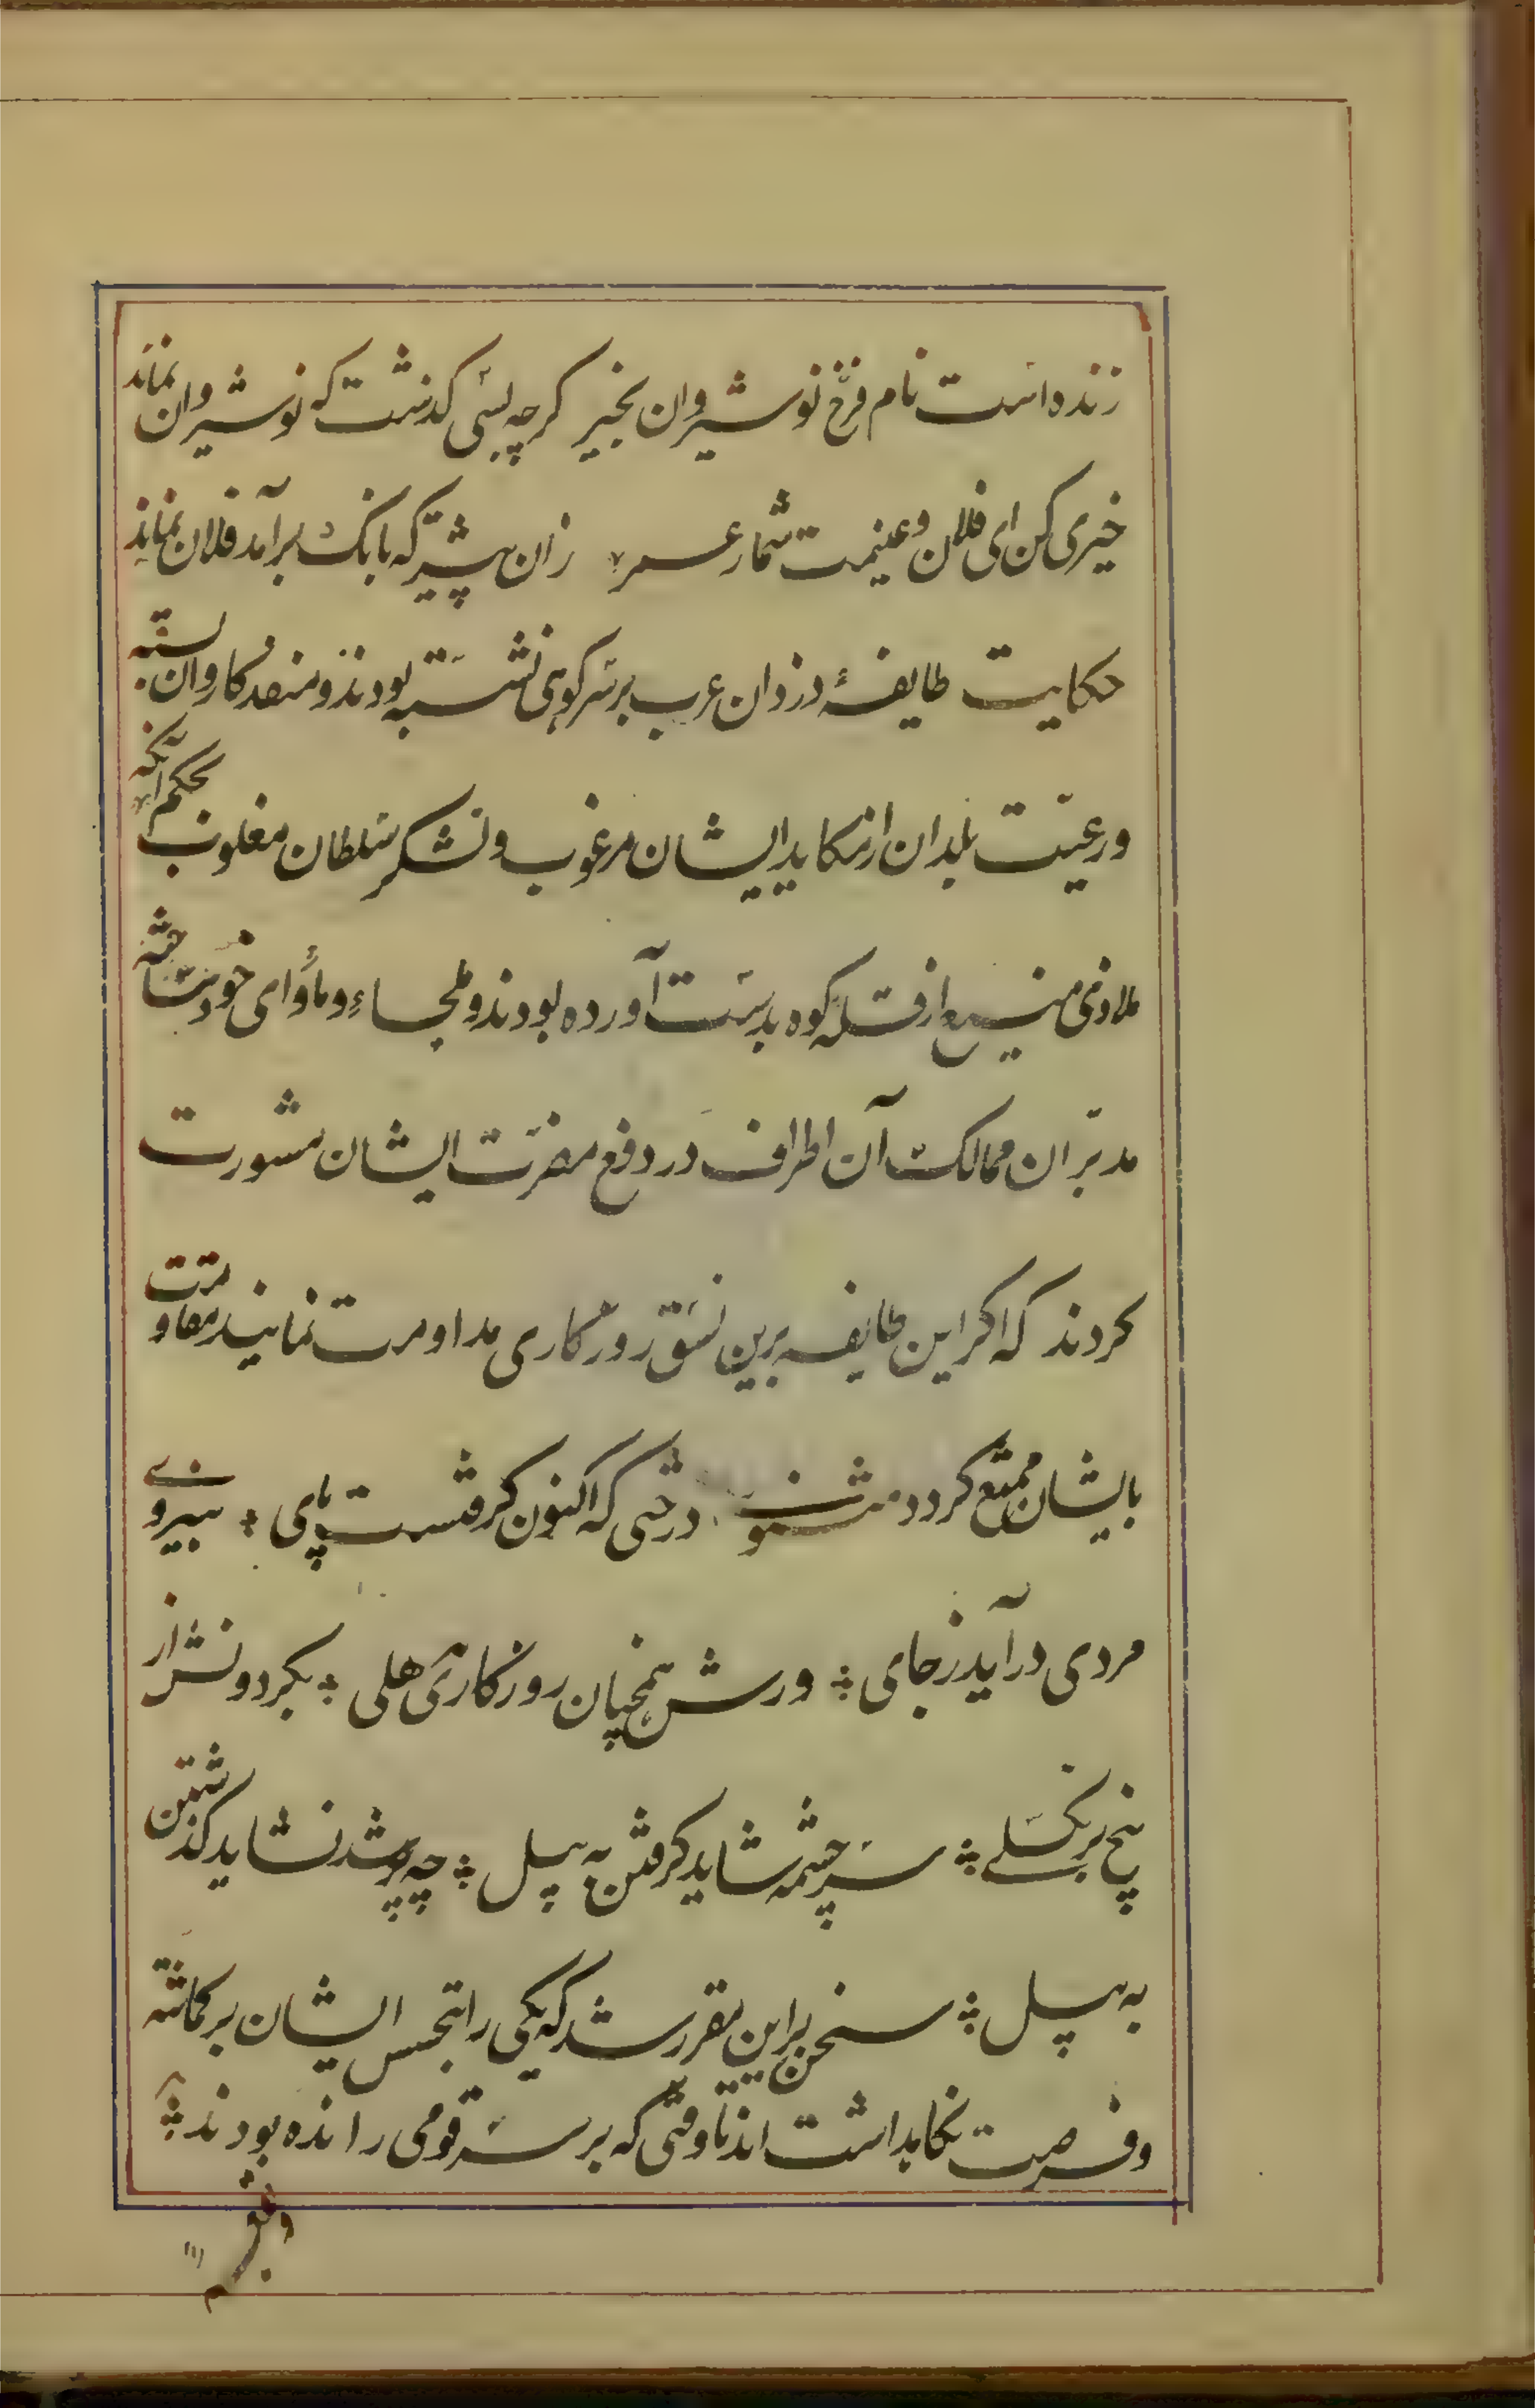 زنده است نام فرخ نوشیروان بخیر کرچه بسی کذشت که نوشیروان نماند
خیری کن ای فلان و غنیمت شمار عمر زان پیشتر که بانک برآمد فلان نماند
حکایت طایفهٔ دزدان عرب بر سر کوهی نشسته بودند و منفذ کاروان بسته
و رعیّت بلدان از مکاید ایشان مرغوب و لشکر سلطان مغلوب بحکم آنکه
ملاذی منیع از قله کوه بدست آورده بودند و ملجاء و مأوای خود ساخته
مدبّران ممالک آن اطراف در دفع مضرّت ایشان مشورت
کردند که اکر این طایفه برین نسق روزکاری مداومت نمایند مقاومت
بایشان ممتنع کردد مثنوی درختی که اکنون کرفتست پای بنیروی
مردی درآید ز جای ورش همچنان روزکاری هلی بکردونش از
بیخ بر نکسلی سر چشمه شاید کرفتن به بیل چو پر شد نشاید کذشتن
به پیل سخن براین مقرر شد که یکی را بتجسس ایشان برکماشته
و فرصت نکاه داشت اند تا وقتی که بر سر قومی رانده بودند